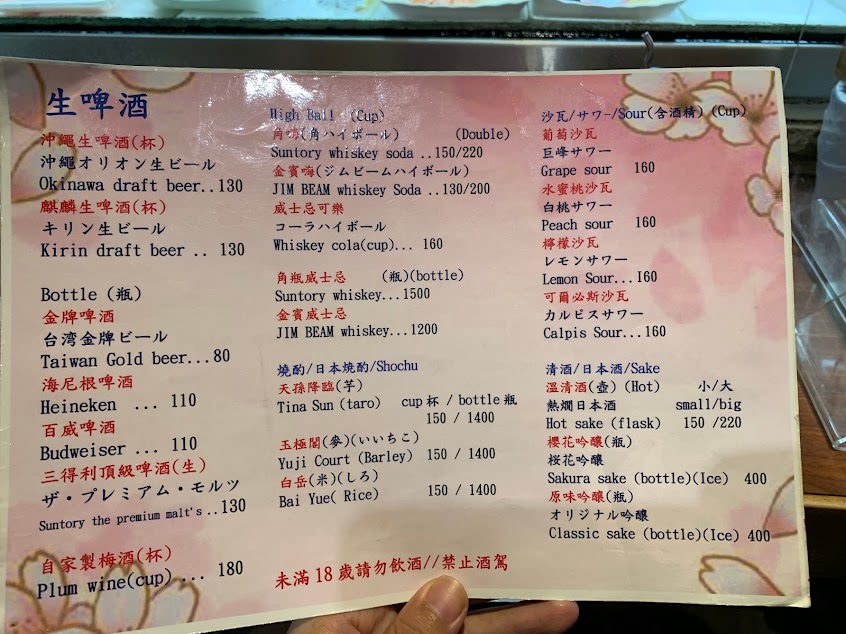 生啤酒
沖繩生啤酒(杯)
沖繩オリオン生ビール
Okinawa draft beer..130
麒麟生啤酒(杯)
キリン生ビール
Kirin draft beer .. 130
Bottle (瓶)
金牌啤酒
台湾金牌ビール
Taiwan Gold beer...80
海尼根啤酒
Heineken ... 110
百威啤酒
Budweiser ... 110
三得利頂級啤酒(生)
ザ・プレミアム・モルツ
Suntory the premium malt's ..130
自家製梅酒(杯)
Plum wine(cup) ... 180
High Ball (Cup)
角嗨(角ハイボール) (Double)
Suntory whiskey soda ..150/220
金賓嗨(ジムビームハイボール)
JIM BEAM whiskey Soda ..130/200
威士忌可樂
コーラハイボール
Whiskey cola(cup)... 160
角瓶威士忌 (瓶)(bottle)
Suntory whiskey...1500
金賓威士忌
JIM BEAM whiskey...1200
燒酌/日本焼酌/Shochu
天孫降臨(芋)
Tina Sun (taro) cup 杯 / bottle 瓶
150 / 1400
玉極閣(麥)(いいちこ)
Yuji Court (Barley) 150 / 1400
白岳(米)(しろ)
Bai Yue( Rice) 150 / 1400
未滿 18 歲請勿飲酒//禁止酒駕
沙瓦/サワ-/Sour(含酒精) (Cup)
葡萄沙瓦
巨峰サワー
Grape sour 160
水蜜桃沙瓦
白桃サワー
Peach sour 160
檸檬沙瓦
レモンサワー
Lemon Sour...160
可爾必斯沙瓦
カルピスサワー
Calpis Sour...160
清酒/日本酒/Sake
溫清酒(壺) (Hot) 小/大
熱燗日本酒 small/big
Hot sake (flask) 150 /220
櫻花吟釀(瓶)
桜花吟醸
Sakura sake (bottle)(Ice) 400
原味吟釀(瓶)
オリジナル吟醸
Classic sake (bottle)(Ice) 400